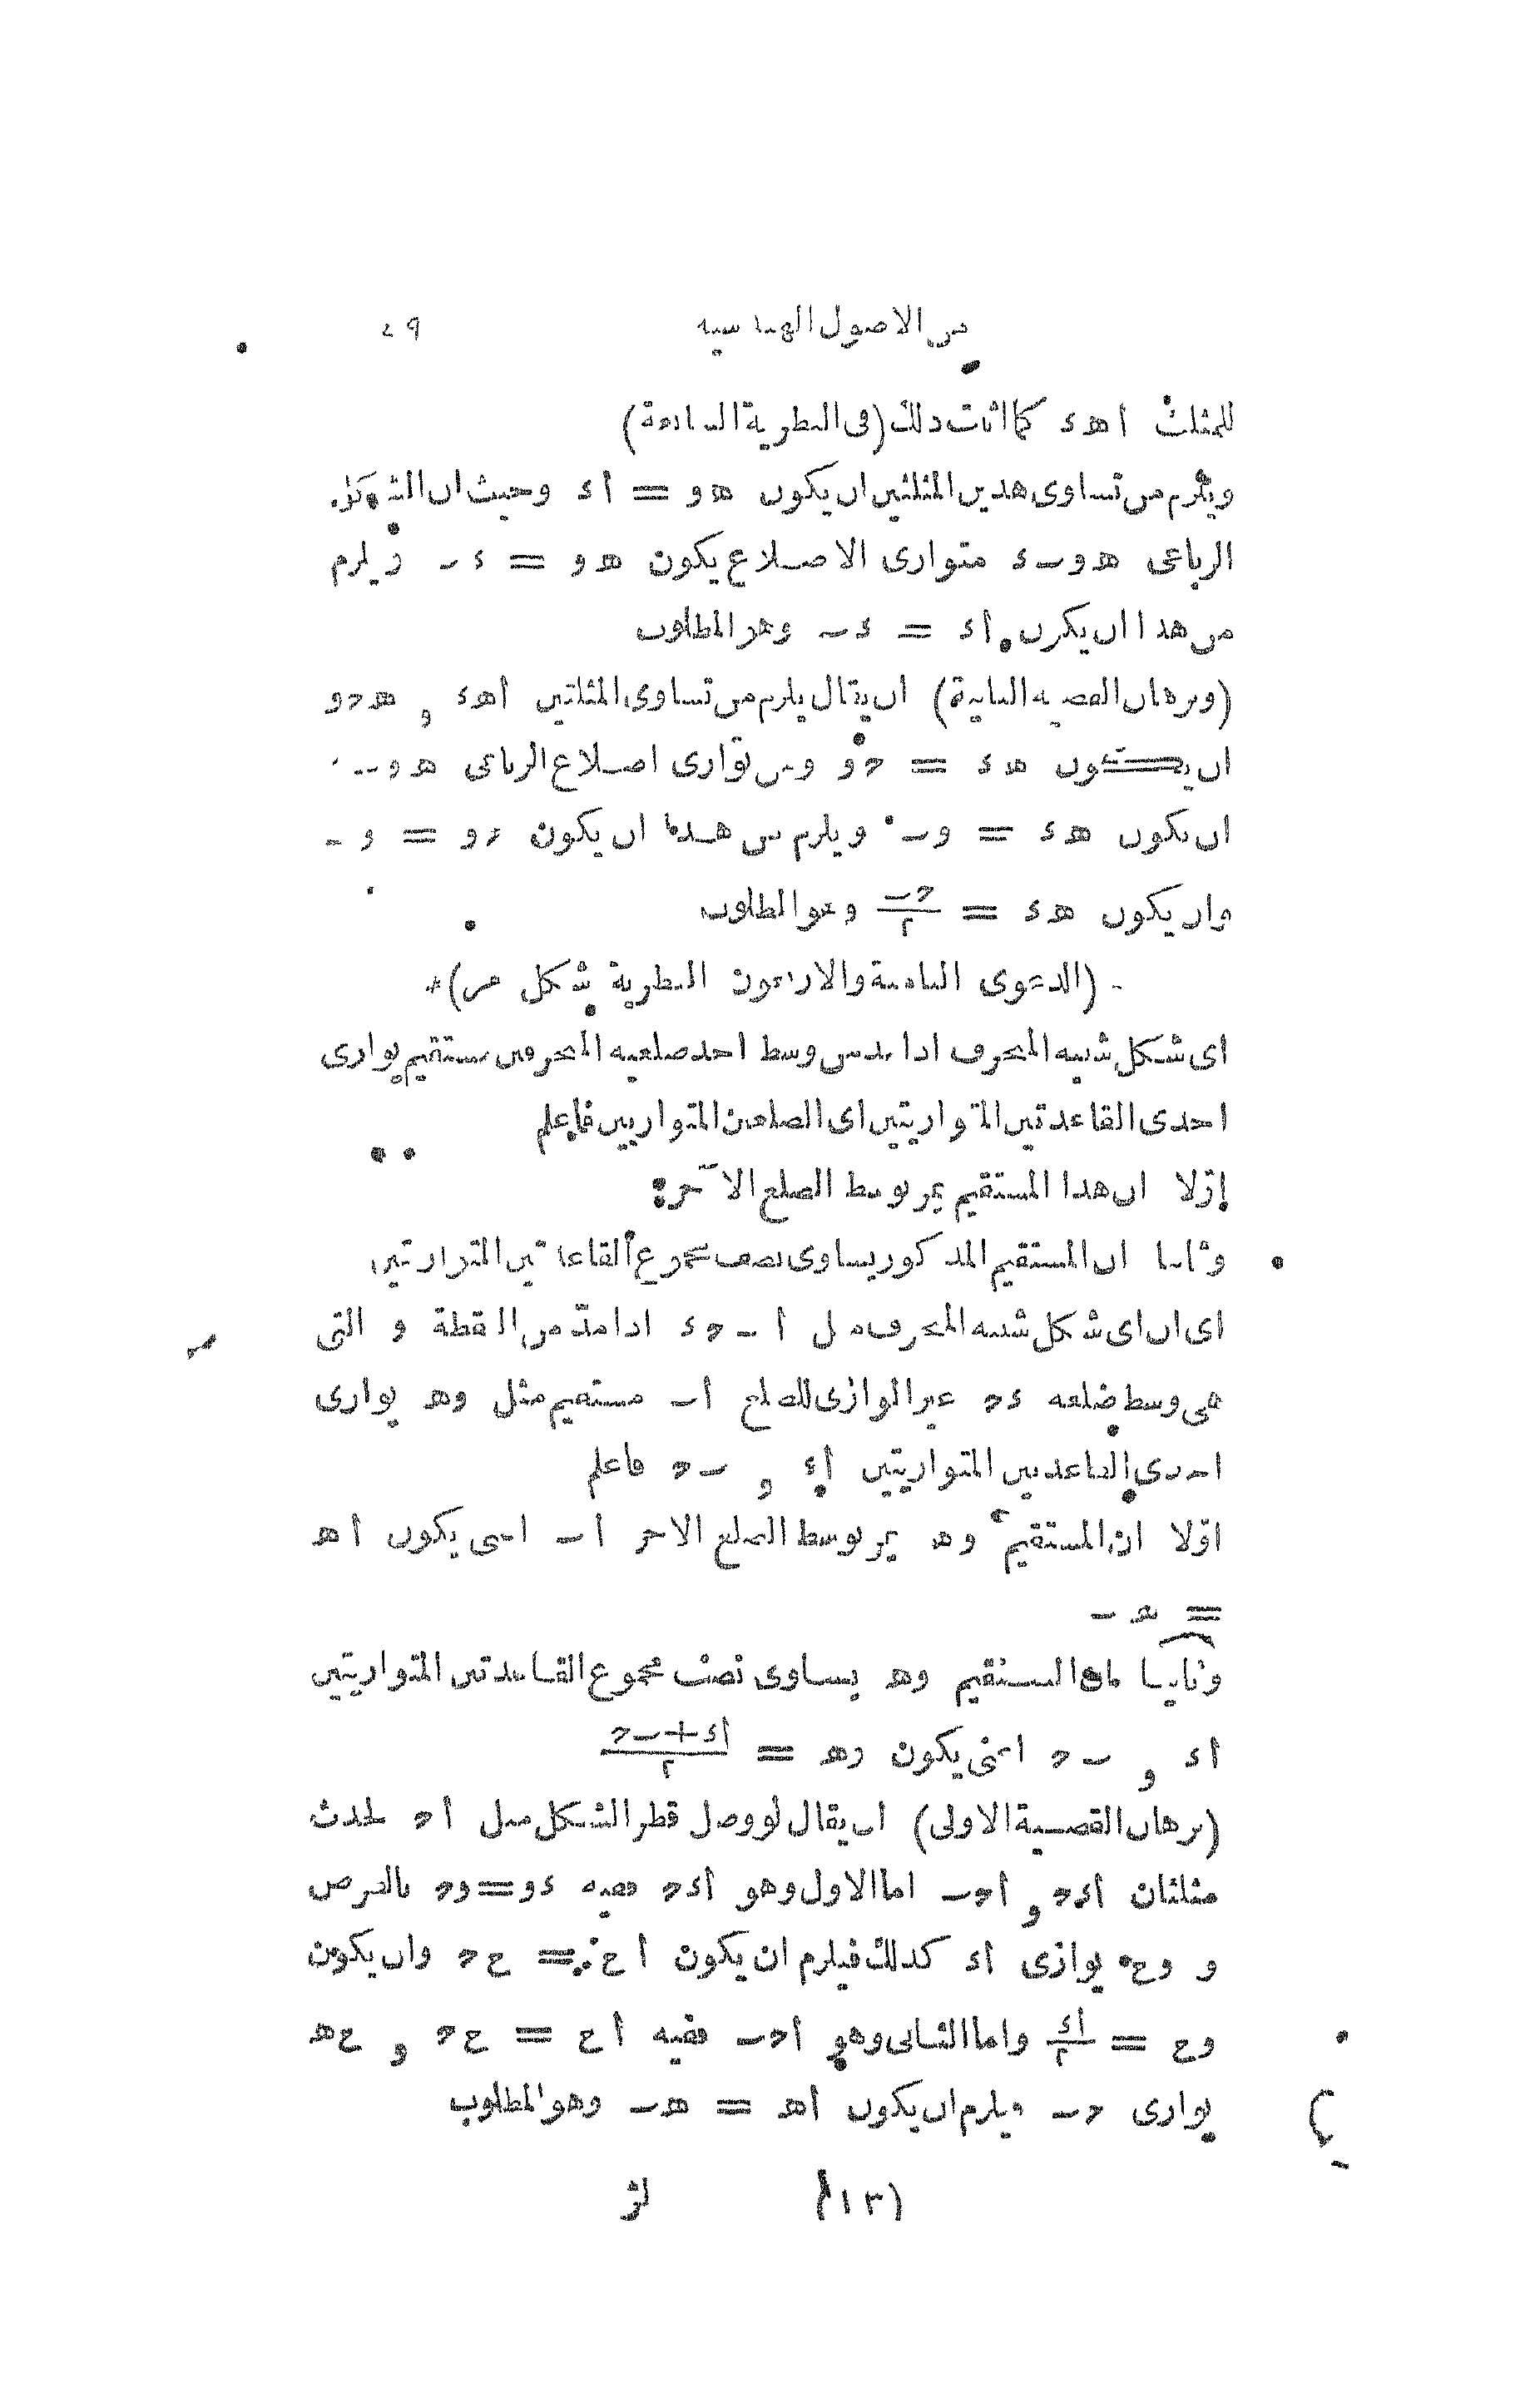 من الاصول الهندسيه ٤٩
للمثلث أهء كما اثبات ذلك (فى النظرية السابعة)
ويلزم من تساوى هذين المثلثين ان يكون هو = أء وحيث ان الشكل
الرباعى هوبء متوازى الاضلاع يكون هو = ءب ويلزم
من هذا ان يكون أء = ءب وهو المطلوب
(وبرهان القضيه الثانية) ان يقال يلزم من تساوى المثلثين أهء و هحو
ان يكون هء = حو ومن توازى اضلاع الرباعى هوب
ان يكون هء = وب ويلزم من هذا ان يكون حو = وب
وان يكون هء = حب/٢ وهو المطلوب
(الدعوى الثامنة والاربعون النظرية شكل)
اى شكل شبيه المنحرف اذا مد من وسط احد ضلعيه المنحرفين مستقيم يوازى
احدى القاعدتين المتوازيتين اى الضلعين المتوازيين فاعلم
اوّلا ان هذا المستقيم يمر بوسط الضلع الآخر
وثانيا ان المستقيم المذكور يساوى نصف مجموع القاعدتين المتوازيتين
اى ان اى شكل شبيه المنحرف مثل أبحء اذا مدّ من النقطة و التى
هى وسط ضلعه ءح غير الموازى للضلع أب مستقيم مثل وهـ يوازى
احدى القاعدتين المتوازيتين أء و بح فاعلم
اوّلا ان المستقيم وهـ يمر بوسط الضلع الاخر أب اعنى يكون أهـ
= هب
وثانيا ان المستقيم وهـ يساوى نصف مجموع القاعدتين المتوازيتين
أء و بح اعنى يكون وهـ = أء+بح/٢
(برهان القضية الاولى) ان يقال لو وصل قطر الشكل مثل أح لحدث
مثلثان أءح و أحب اما الاول وهو أءح ففيه ءو=وح بالفرض
و وح يوازى أء كذلك فيلزم ان يكون أح = حح وان يكون
وح = أء/٢ واما الثانى وهو أحب ففيه أح = حح و حهـ
يوازى حب ويلزم ان يكون أهـ = هب وهو المطلوب
(١٣)